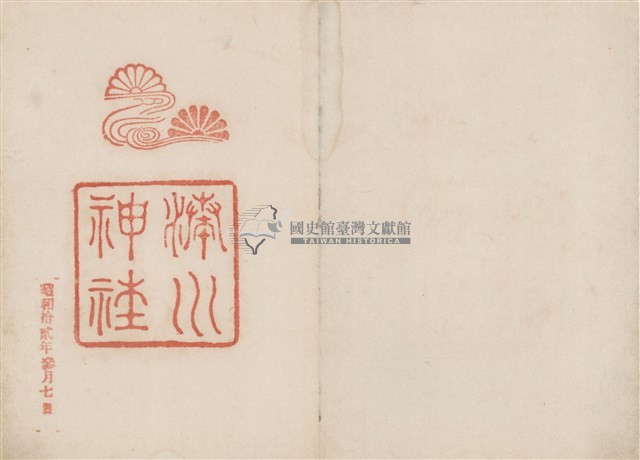 湊川
神社
昭和拾貳年參月七日
國史館臺灣文獻館
TAIWAN HISTORICA